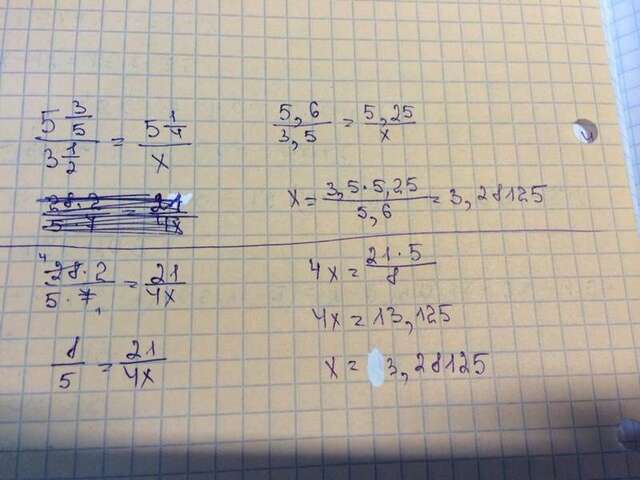 5 3/5 / 3 1/2 = 5 1/4 / x
5,6 / 3,5 = 5,25 / x
x = 3,5·5,25 / 5,6 = 3,28125
28·2 / 5·7 = 21 / 4x
8 / 5 = 21 / 4x
4x = 21·5 / 8
4x = 13,125
x = 3,28125